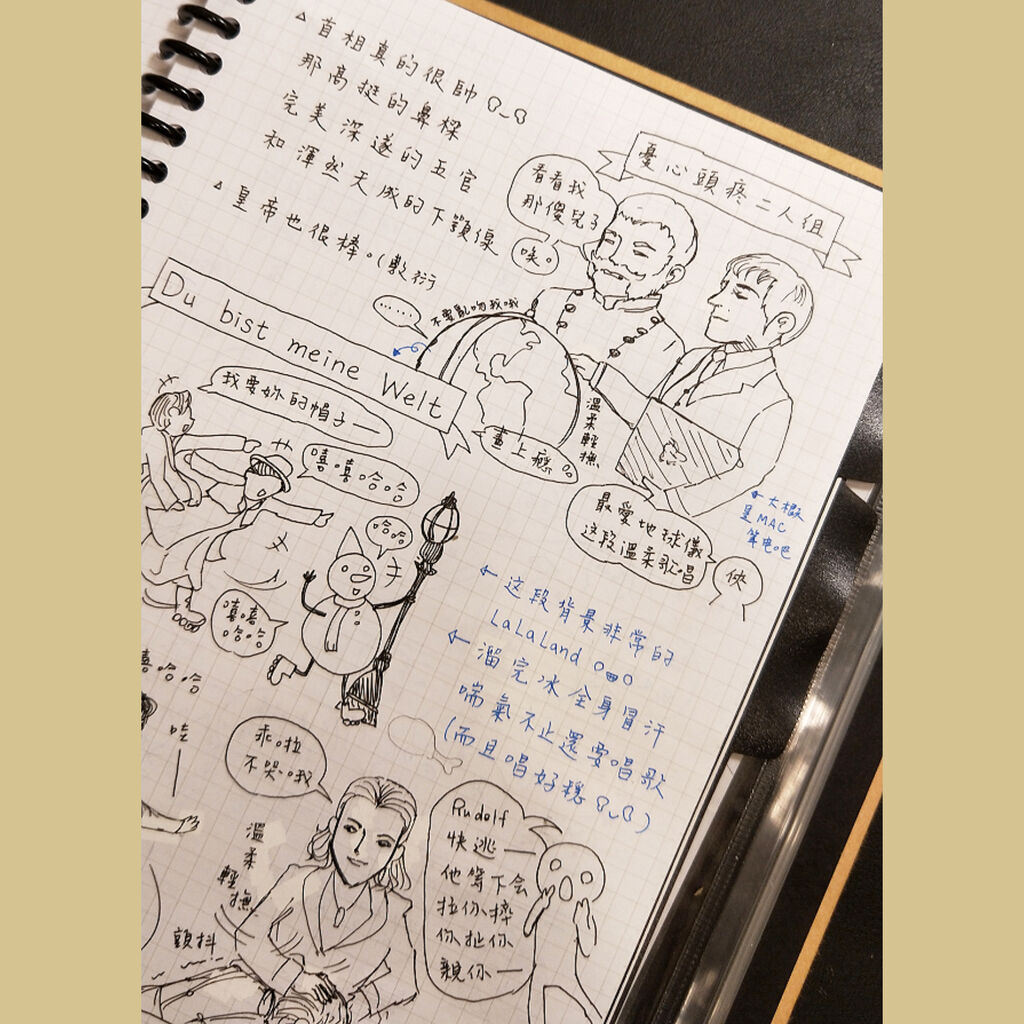 ▵首相真的很帥
那高挺的鼻樑
完美深遂的五官
和渾然天成的下顎線
▵皇帝也很棒。(敷衍
憂心頭疼二人組
看看我
那傻兒子
唉。
......
不要亂吻我哦
Du bist meine Welt
我要妳的帽子—
嘻嘻哈哈
畫上癮
溫柔輕撫
最愛地球儀
这段溫柔歌唱
←大概
是MAC
筆电吧
哈哈
嘻嘻
哈哈
←这段背景非常的
LaLaLand
←溜完冰全身冒汗
喘氣不止還要唱歌
(而且唱好穩)
嘻哈哈
哇—
乖啦
不哭哦
溫柔輕撫
顫抖
Rudolf
快逃—
他等下会
拉你摔
你扯你
親你—